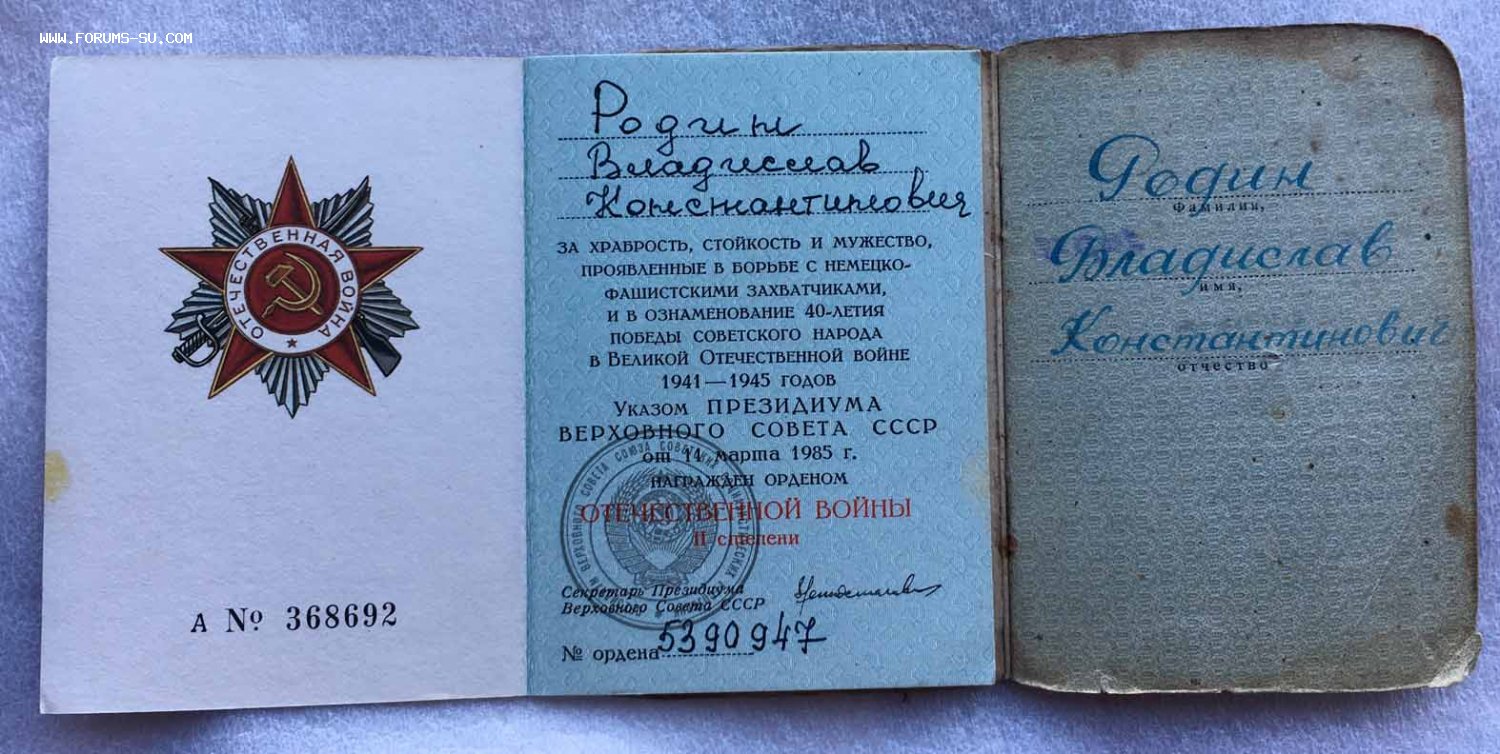 WWW.FORUMS-SU.COM
ОТЕЧЕСТВЕННАЯ ВОЙНА
А № 368692
Родин
Владислав
Константинович
ЗА ХРАБРОСТЬ, СТОЙКОСТЬ И МУЖЕСТВО,
ПРОЯВЛЕННЫЕ В БОРЬБЕ С НЕМЕЦКО-
ФАШИСТСКИМИ ЗАХВАТЧИКАМИ,
И В ОЗНАМЕНОВАНИЕ 40-ЛЕТИЯ
ПОБЕДЫ СОВЕТСКОГО НАРОДА
В ВЕЛИКОЙ ОТЕЧЕСТВЕННОЙ ВОЙНЕ
1941—1945 ГОДОВ
УКАЗОМ ПРЕЗИДИУМА
ВЕРХОВНОГО СОВЕТА СССР
от 11 марта 1985 г.
НАГРАЖДЕН ОРДЕНОМ
ОТЕЧЕСТВЕННОЙ ВОЙНЫ
II степени
Секретарь Президиума
Верховного Совета СССР
№ ордена 5390947
Родин
фамилия,
Владислав
имя,
Константинович
отчество